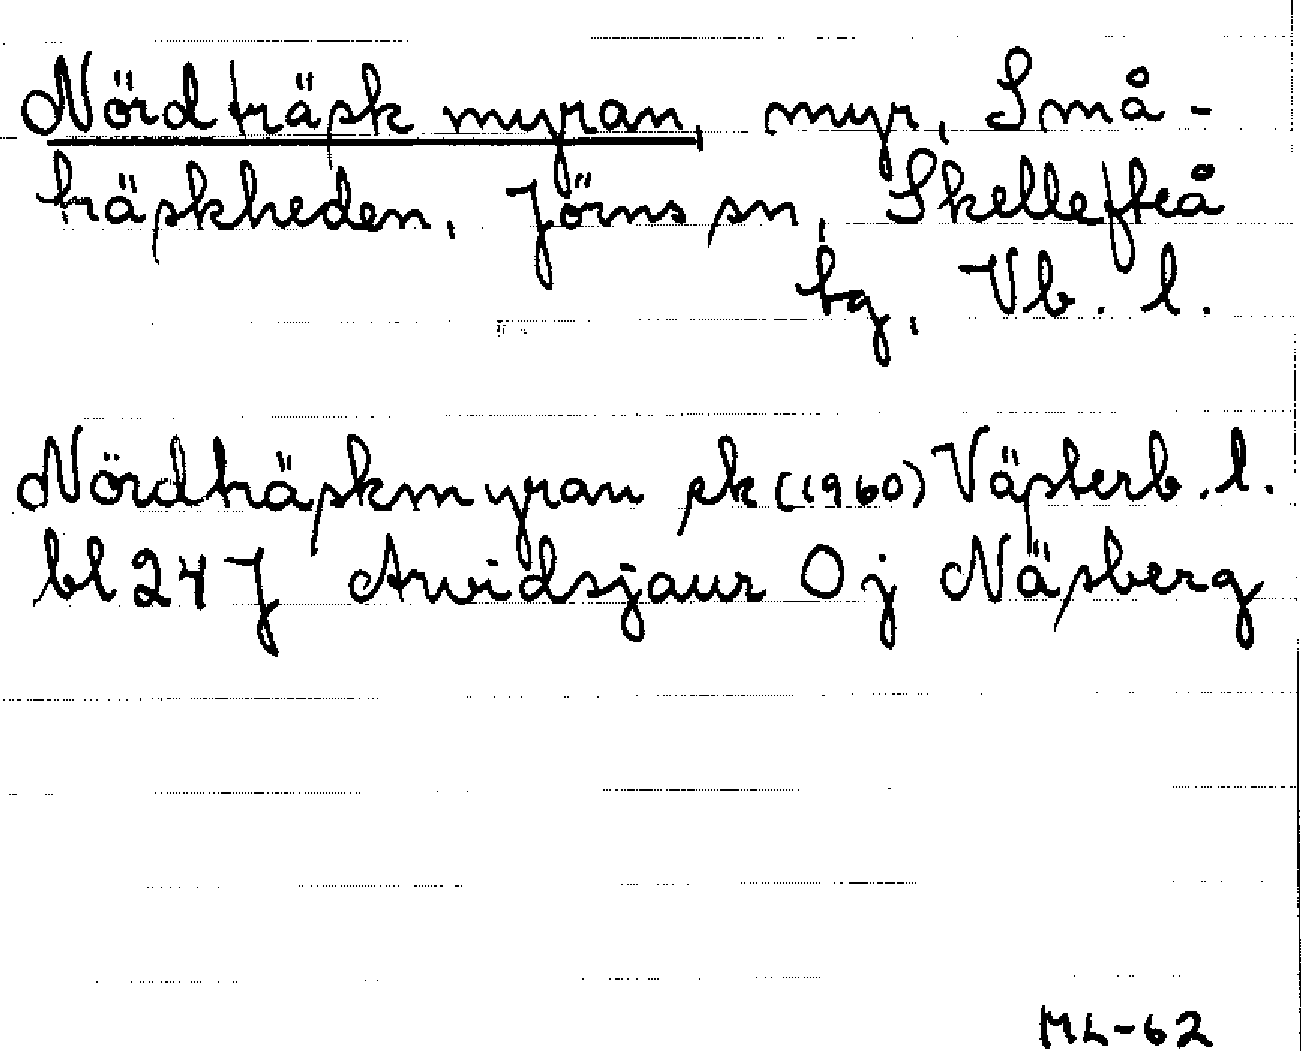 Nördträskmyran, myr, Små-
träskheden, Jörns sn, Skellefteå
tg, Vb. l.
Nördträskmyran ek (1960) Västerb. l.
bl 24 J Arvidsjaur 0 j Näsberg
ML-62